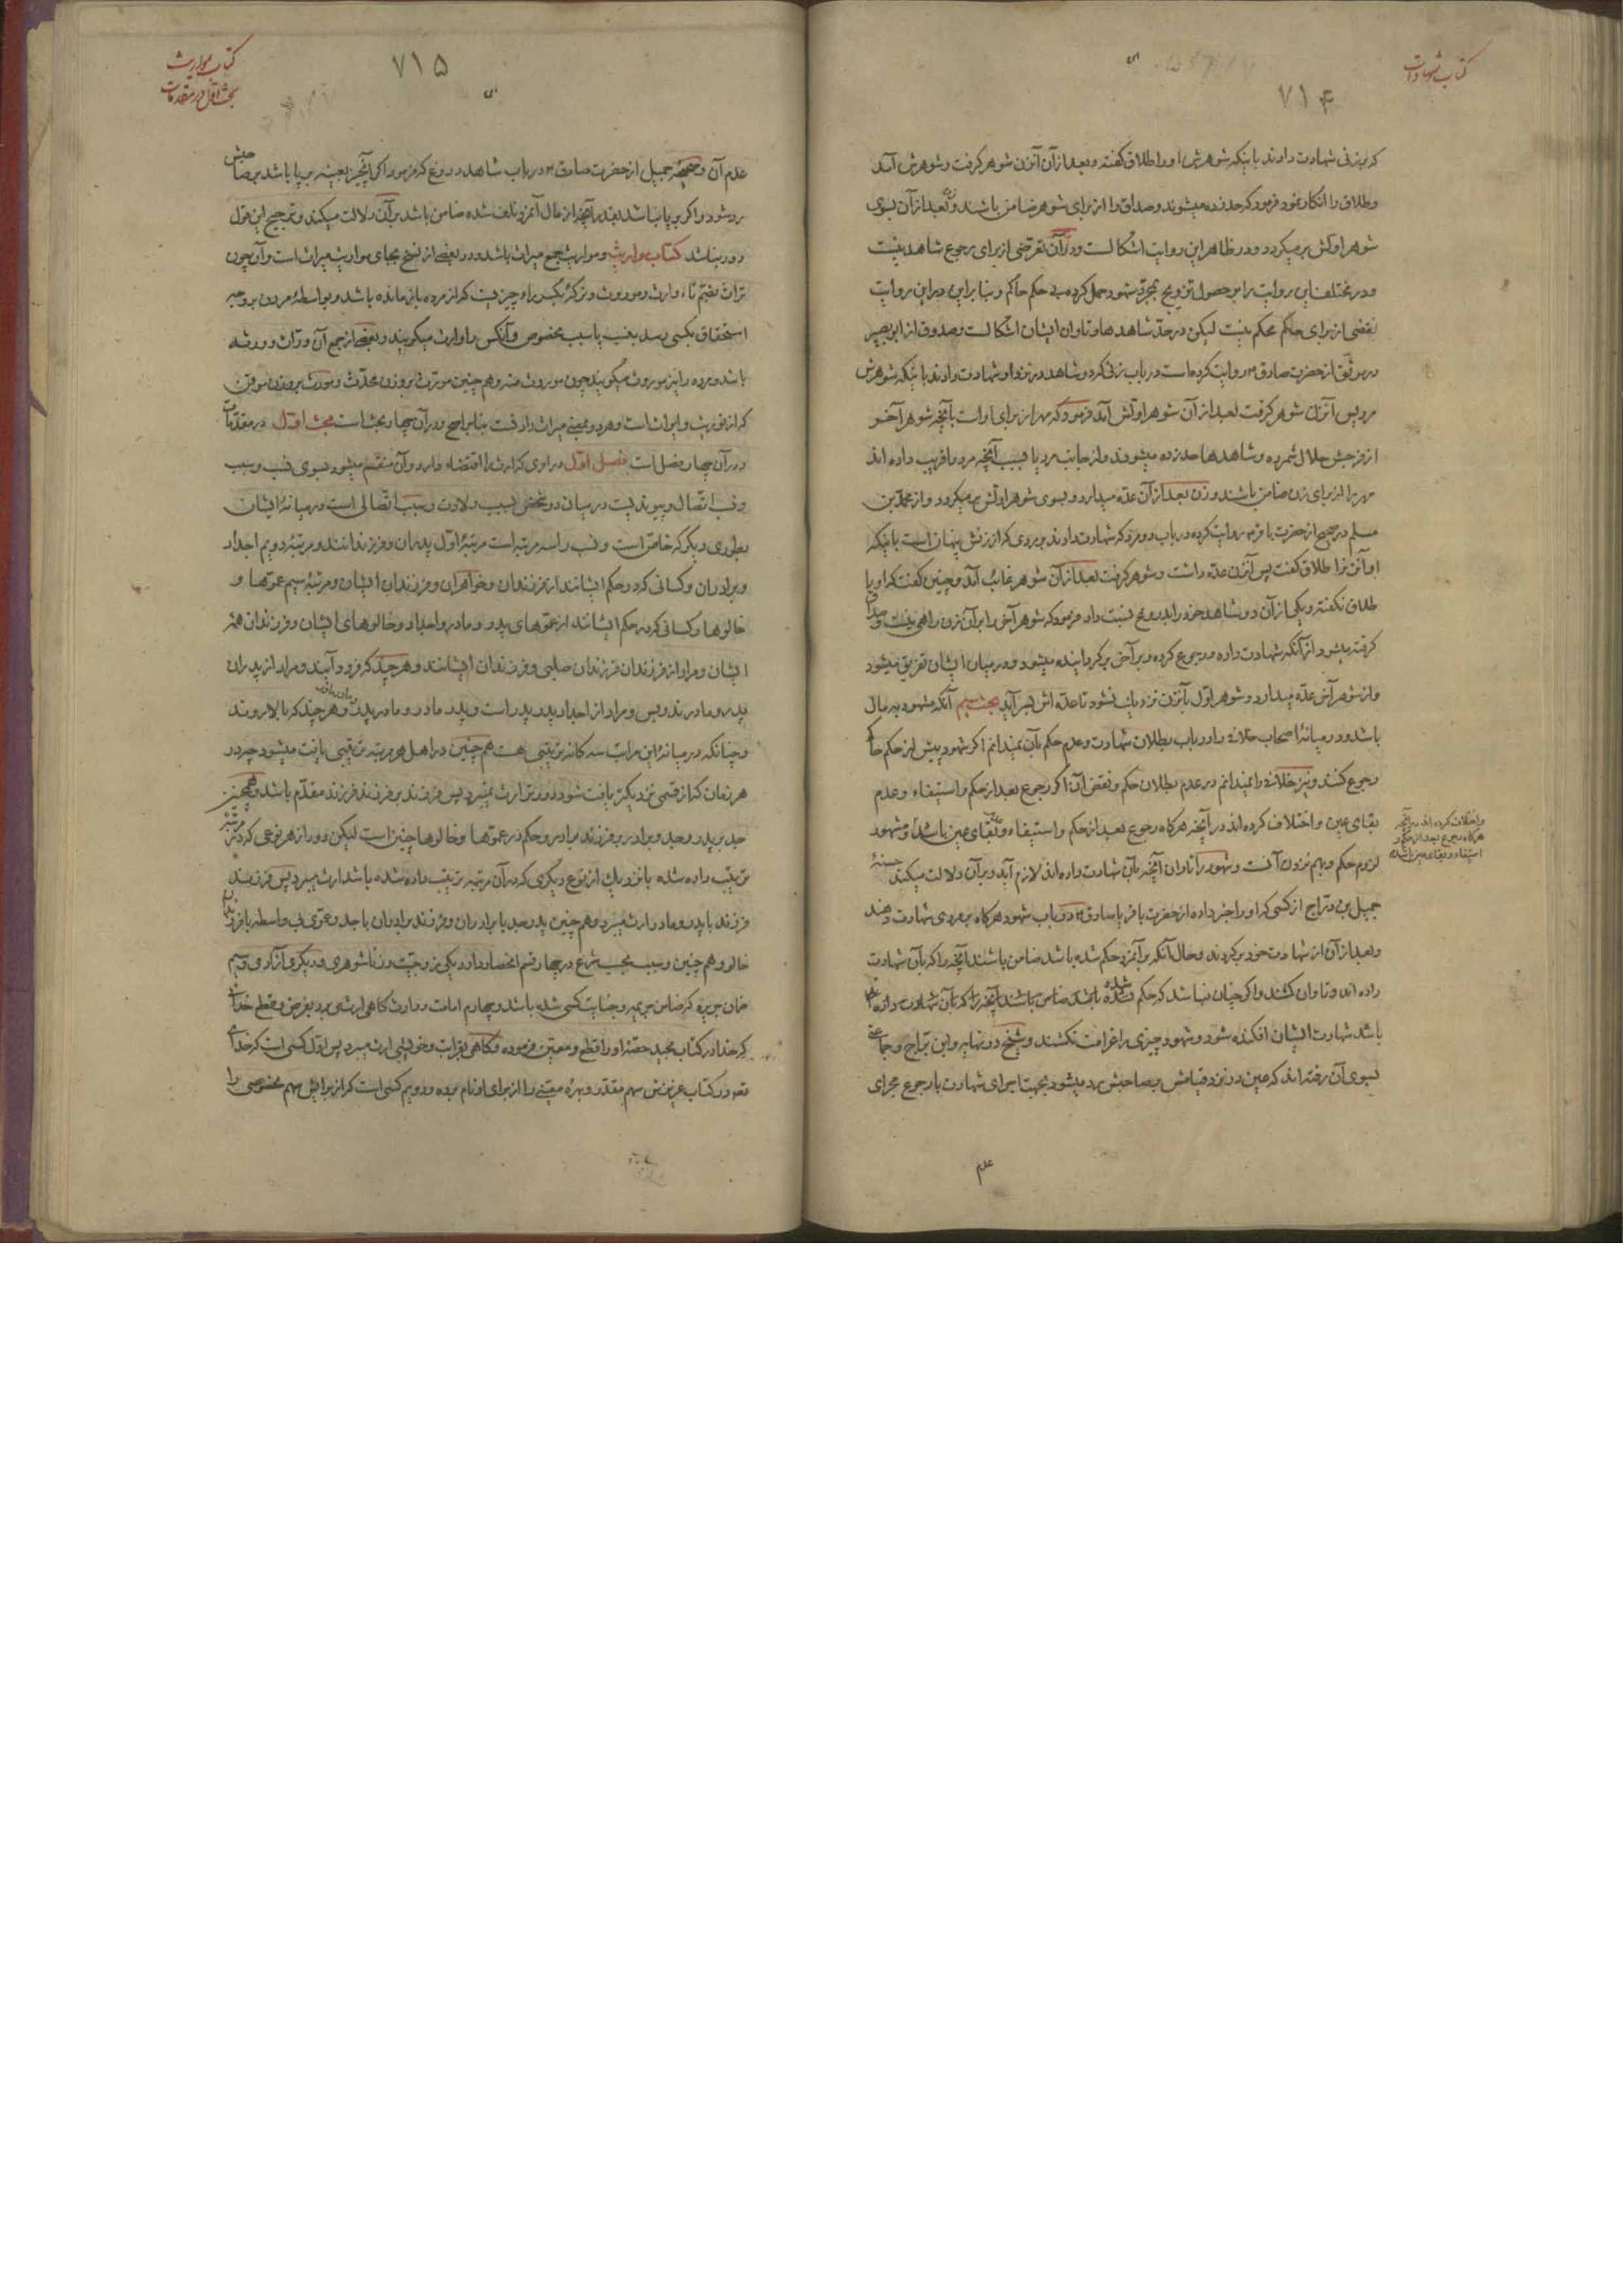 کتاب شهادات
۷۱۴
که بر زنی شهادت دادند باینکه شوهرش او را طلاق گفته و بعد از آن آنزن شوهر کرفت و شوهرش آمد
و طلاق را انکار نمود فرمود که حد زده میشوند و صداق را از برای شوهر ضامن باشند و زن بعد از آن بسوی
شوهر اولش برمیکردد و در ظاهر این روایت اشکالست و در آن تعرضی از برای رجوع شاهد نیست
و در مختلف این روایت را بر حصول تزویج بمجرد شهود حمل کرده بی حکم حاکم و بنابراین در این روایت
نقضی از برای حکم محکم نیست لیکن در حد شاهدها و تاوان ایشان اشکالست و صدوق از ابی بصیر
در موثق از حضرت صادق م روایت کرده است در باب زنی که دو شاهد در نزد او شهادت دادند باینکه شوهرش
مرد پس آنزن شوهر کرفت بعد از آن شوهر اولش آمد فرمود که مهر از برای او است بآنچه شوهر آخر
از فرجش حلال شمرده و شاهدها حد زده میشوند و از جانب مرد بسبب آنچه مرد را فریب داده اند
مهر را از برای زن ضامن باشند و زن بعد از آن عده میدارد و بسوی شوهر اولش برمیکردد و از محمد بن
مسلم در صحیح از حضرت باقر م روایت کرده در باب دو مرد که شهادت دادند بر مردی که از زنش پنهان است باینکه
او آنزن را طلاق گفت پس آنزن عده داشت و شوهر کرفت بعد از آن شوهر غائب آمد و چنین کفت که او را
طلاق نکفته و یکی از آن دو شاهد خود را بدروغ نسبت داد فرمود که شوهر آخر را بر آن زن راهی نیست و صداق
کرفته میشود از آنکه شهادت داده و رجوع کرده و بر آخر برکردانیده میشود و در میان ایشان تفریق میشود
و از شوهر آخر عده میدارد و شوهر اول بآنزن نزدیک نشود تا عده اش بسر آید بحث سیم آنکه شهود به مال
باشد و در میانهٔ اصحاب خلافی را در باب بطلان شهادت و عدم حکم بآن نمیدانم اکر شهود پیش از حکم حاکم
رجوع کنند و نیز خلافی را نمیدانم در عدم بطلان حکم و نقض آن اکر رجوع بعد از حکم و استیفاء و عدم
بقای عین و اختلاف کرده اند در آنچه هرکاه رجوع بعد از حکم و استیفاء و بقای عین باشد و مشهور
و اختلاف کرده اند در آنچه
هرکاه رجوع بعد از حکم و
استیفاء و بقای عین باشد
لزوم حکم و بهم نزدن آنست و شهود را تاوان آنچه بآن شهادت داده اند لازم آید و بر آن دلالت میکند حسنهٔ
جمیل بن دراج از کسی که او را خبر داده از حضرت باقر یا صادق م در باب شهود هرکاه بر مردی شهادت دهند
و بعد از آن از شهادت خود برکردند و حال آنکه بر آنمرد حکم شده باشد ضامن باشند آنچه را که بآن شهادت
داده اند و تاوان کشند و اکر چنان نباشد که حکم شده باشد
باشد شهادت ایشان افکنده شود و شهود چیزی را غرامت نکشند و شیخ در نهایه و ابن براج و جماعتی
بسوی آن رفته اند که عین در نزد قیامش بصاحبش رد میشود بجهت اجرای شهادت با رجوع مجرای
عدم
کتاب مواریث
بحث اول در مقدمات
۷۱۵
عدم آن و صحیحهٔ جمیل از حضرت صادق م در باب شاهد دروغ که فرمود اکر آنچیز بعینه بر پا باشد بر صاحبش
رد شود و اکر بر پا نباشد بقدر آنچه از مال آنمرد تلف شده ضامن باشد بر آن دلالت میکند و ترجیح این قول
دور نباشد کتاب مواریث و مواریث جمع میراث باشد و در بعضی از نسخ بجای مواریث میراث است و آن چون
تراث بضم تاء و ارث و موروث و ترکه بکسر راء چیزیست که از مرده باز مانده باشد و بواسطهٔ مردن بر وجه
استحقاق بکسی رسد بنسب یا سبب مخصوص و آنکس را وارث میکویند و بعضی از جمع آن وراث و ورثه
باشد و مرده را نیز موروث میکویند چون موروث منه و هم چنین مورث بر وزن محدث و مورث بر وزن موقن
که از توریث و ایراث است و هر دو بمعنی میراث دادنست بنابر واضح و در آن چهار بحث است بحث اول در مقدمات
و در آن چهار فصل است فصل اول در اموری که ارث را اقتضاء دارد و آن منقسم میشود بسوی نسب و سبب
و نسب اتصال و پیوندیست در میان دو شخص بسبب ولادت و سبب اتصالی است در میانهٔ ایشان
بطوری دیکر که خاص است و نسب را سه مرتبه است مرتبهٔ اول پدران و فرزندانند و مرتبهٔ دویم اجداد
و برادران و کسانی که در حکم ایشانند از فرزندان و خواهران و فرزندان ایشان و مرتبهٔ سیم عموها و
خالوها و کسانی که در حکم ایشانند از عموهای پدر و مادر و اجداد و خالوهای ایشان و فرزندان همهٔ
ایشان و مراد از فرزندان فرزندان صلبی و فرزندان ایشانند و هر چند که فرود آیند و مراد از پدران
پدر و مادرند و بس و مراد از اجداد پدر پدر است و پدر مادر و مادر پدر و مادر مادر و هر چند که بالا روند
و چنانکه در میانهٔ این مراتب سه کانه ترتیبی هست هم چنین در اهل هر مرتبه ترتیبی یافت میشود چه در
هر زمان که از قسمی نزدیکتر یافت شود دورتر ارث نمیبرد پس فرزند بر فرزند فرزند مقدم باشد و همچنین
جد بر پدر جد و برادر بر فرزند برادر و حکم در عموها و خالوها چنین است لیکن دور از هر نوعی که در مرتبهٔ
ترتیب داده شده با نزدیک از نوع دیکری که در آن مرتبه ترتیب داده شده باشد ارث میبرد پس فرزند
فرزند با پدر و مادر ارث میبرد و هم چنین پدر جد با برادران و فرزند برادران با جد و عموی بی واسطه با فرزندان
خالو و هم چنین و سبب بحسب شرع در چهار قسم انحصار دارد یکی زوجیت و زناشوهری و دیکری آزادی و سیم
ضمان جریره که ضامن جریره و جنایت کسی شده باشد و چهارم امامت و وارث کاهی ارث میبرد بفرض و قطع خدای
که خدا در کتاب مجید حصهٔ او را قطع و معین فرموده و کاهی بقرابت و خویشی ارث میبرد پس اول کسی است که خدای
تعـ در کتاب عزیزش سهم مقدر و بهرهٔ معینی را از برای او نام برده و دویم کسی است که از برایش سهم مخصوصی را